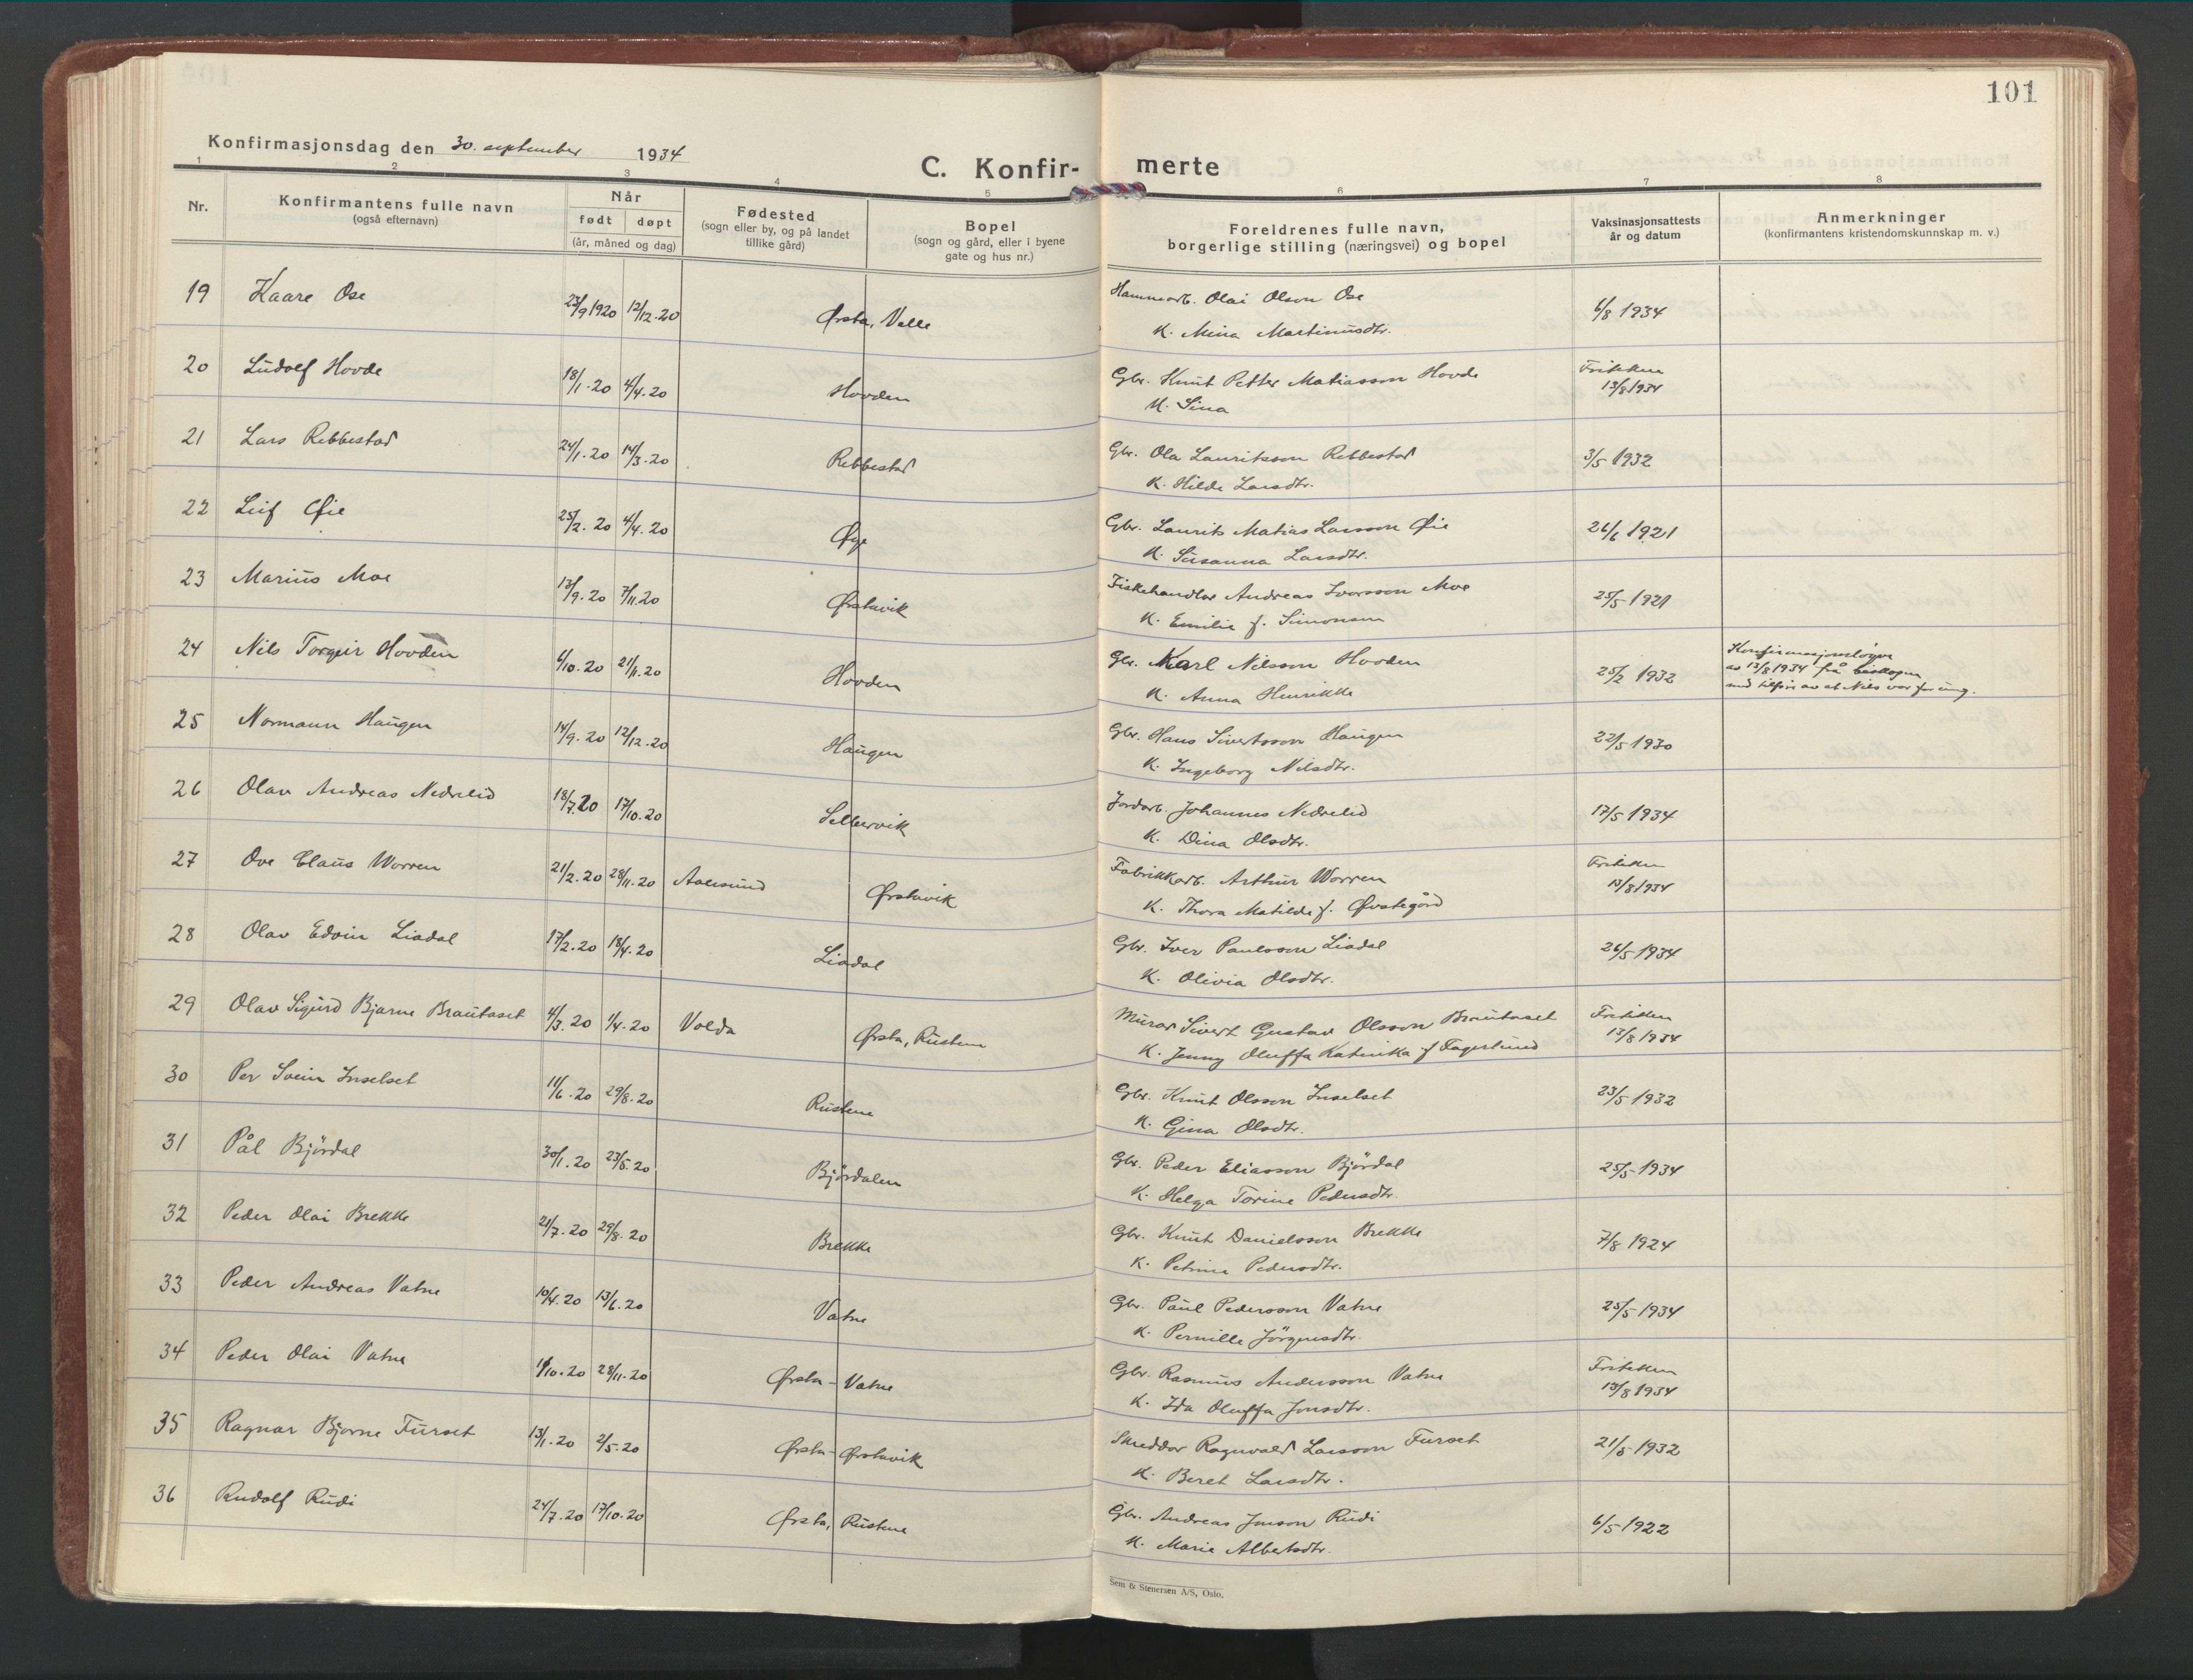 101
Konfirmasjonsdag den 30. september 1934
C. Konfir- merte
1 2 3 4 5 6 7 8
Nr.
Konfirmantens fulle navn
(også efternavn)
Når
født døpt
(år, måned og dag)
Fødested
(sogn eller by, og på landet
tillike gård)
Bopel
(sogn og gård, eller i byene
gate og hus nr.)
Foreldrenes fulle navn,
borgerlige stilling (næringsvei) og bopel
Vaksinasjonsattests
år og datum
Anmerkninger
(konfirmantens kristendomskunnskap m. v.)
19 Kaare Ose 23/9 1920 12/12.20 Ørsta, Velle Hammarb. Olai Olson Ose 6/8 1934
K. Mina Martinusdtr.
20 Ludolf Hovde 18/1.20 4/4.20 Hovden Gbr. Knut Petter Matiasson Hovde Friteken 13/8 1934
K. Sina
21 Lars Rebbestad 24/1.20 14/3.20 Rebbestad Gbr. Ola Lauritsson Rebbestad 3/5 1932
K. Hilda Larsdtr.
22 Leif Øie 25/2.20 4/4.20 Øye Gbr. Laurits Matias Larsson Øie 26/6 1921
K. Susanna Larsdtr.
23 Marius Moe 13/9.20 7/11.20 Ørstavik Fiskehandlar Andreas Ivarsson Moe 25/5 1921
K. Emilie f. Simonsen
24 Nils Torgeir Hovden 6/10.20 21/11.20 Hovden Gbr. Karl Nilsson Hovden 25/2 1932 Konfirmasjonsløyve
K. Anna Henrikke av 13/8 1934 frå biskopen
med tilføre av at Nils var for ung.
25 Normann Haugen 14/9.20 12/12.20 Haugen Gbr. Hans Sivertsson Haugen 22/5 1930
K. Ingeborg Nilsdtr.
26 Olav Andreas Nedrelid 18/7.20 17/10.20 Sellervik Jordarb. Johannes Nedrelid 17/5 1934
K. Dina Olsdtr.
27 Ove Claus Worren 21/2.20 28/11.20 Aalesund Ørstavik Fabrikkarb. Arthur Worren Friteken 13/8 1934
K. Thora Matilde f. Øvstegård
28 Olav Edvin Liadal 17/2.20 18/4.20 Liadal Gbr. Iver Paulsson Liadal 26/5 1934
K. Olivia Olsdtr.
29 Olav Sigurd Bjarne Brautaset 4/3.20 1/4.20 Volda Ørsta, Rustene Murar Sivert Gustav Olsson Brautaset Fritekken 13/8 1934
K. Jenny Oluffa Katinka f Fagerlund
30 Per Svein Inselset 11/6.20 29/8.20 Rustene Gbr. Knut Olsson Inselset 23/5 1932
K. Gina Olsdtr.
31 Pål Bjørdal 30/1.20 23/5.20 Bjørdalen Gbr. Peder Eliasson Bjørdal 25/5 1934
K. Helga Torine Pedersdtr.
32 Peder Olai Brekke 21/7.20 29/8.20 Brekke Gbr. Knut Danielsson Brekke 7/8 1924
K. Petrine Pedersdtr.
33 Peder Andreas Vatne 10/4.20 13/6.20 Vatne Gbr. Paul Pedersson Vatne 25/5 1934
K. Pernille Jørgensdtr.
34 Peder Olai Vatne 1/10.20 28/11.20 Ørsta - Vatne Gbr. Rasmus Andersson Vatne Fritekken 13/8 1934
K. Ida Oluffa Jonsdtr.
35 Ragnar Bjarne Furset 13/1.20 2/5.20 Ørsta - Ørstavik Skreddar Ragnvald Larsson Furset 21/5 1932
K. Beret Larsdtr.
36 Rudolf Rudi 24/7.20 17/10.20 Ørsta, Rustene Gbr. Andreas Jonson Rudi 6/5 1922
K. Marie Albertsdtr.
Sem & Stenersen A/S, Oslo.